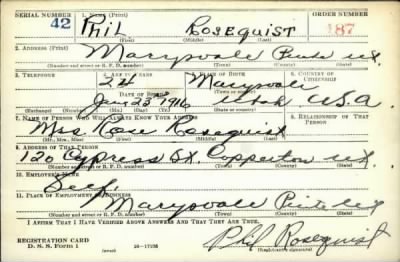 SERIAL NUMBER 1. NAME (Print) ORDER NUMBER
42 Phil ROSEQUIST 187
(First) (Middle) (Last)
2. ADDRESS (Print)
Marysvale Piute Ut.
(Number and street or R. F. D. number) (Town) (County) (State)
3. TELEPHONE 4. AGE IN YEARS 5. PLACE OF BIRTH 6. COUNTRY OF CITIZENSHIP
24 Marysvale
DATE OF BIRTH (Town or county)
Jan 23 1916 Utah U.S.A.
(Exchange) (Number) (Mo.) (Day) (Yr.) (State or country)
7. NAME OF PERSON WHO WILL ALWAYS KNOW YOUR ADDRESS 8. RELATIONSHIP OF THAT PERSON
Mrs. Rose Rosequist
(Mr., Mrs., Miss) (First) (Middle) (Last)
9. ADDRESS OF THAT PERSON
120 Cypress St. Copperton Ut.
(Number and street or R. F. D. number) (Town) (County) (State)
10. EMPLOYER'S NAME
Self
11. PLACE OF EMPLOYMENT OR BUSINESS
Marysvale Piute Ut
(Number and street or R. F. D. number) (Town) (County) (State)
I AFFIRM THAT I HAVE VERIFIED ABOVE ANSWERS AND THAT THEY ARE TRUE.
REGISTRATION CARD
D. S. S. Form 1 16-17105 Phil Rosequist
(Registrant's signature)